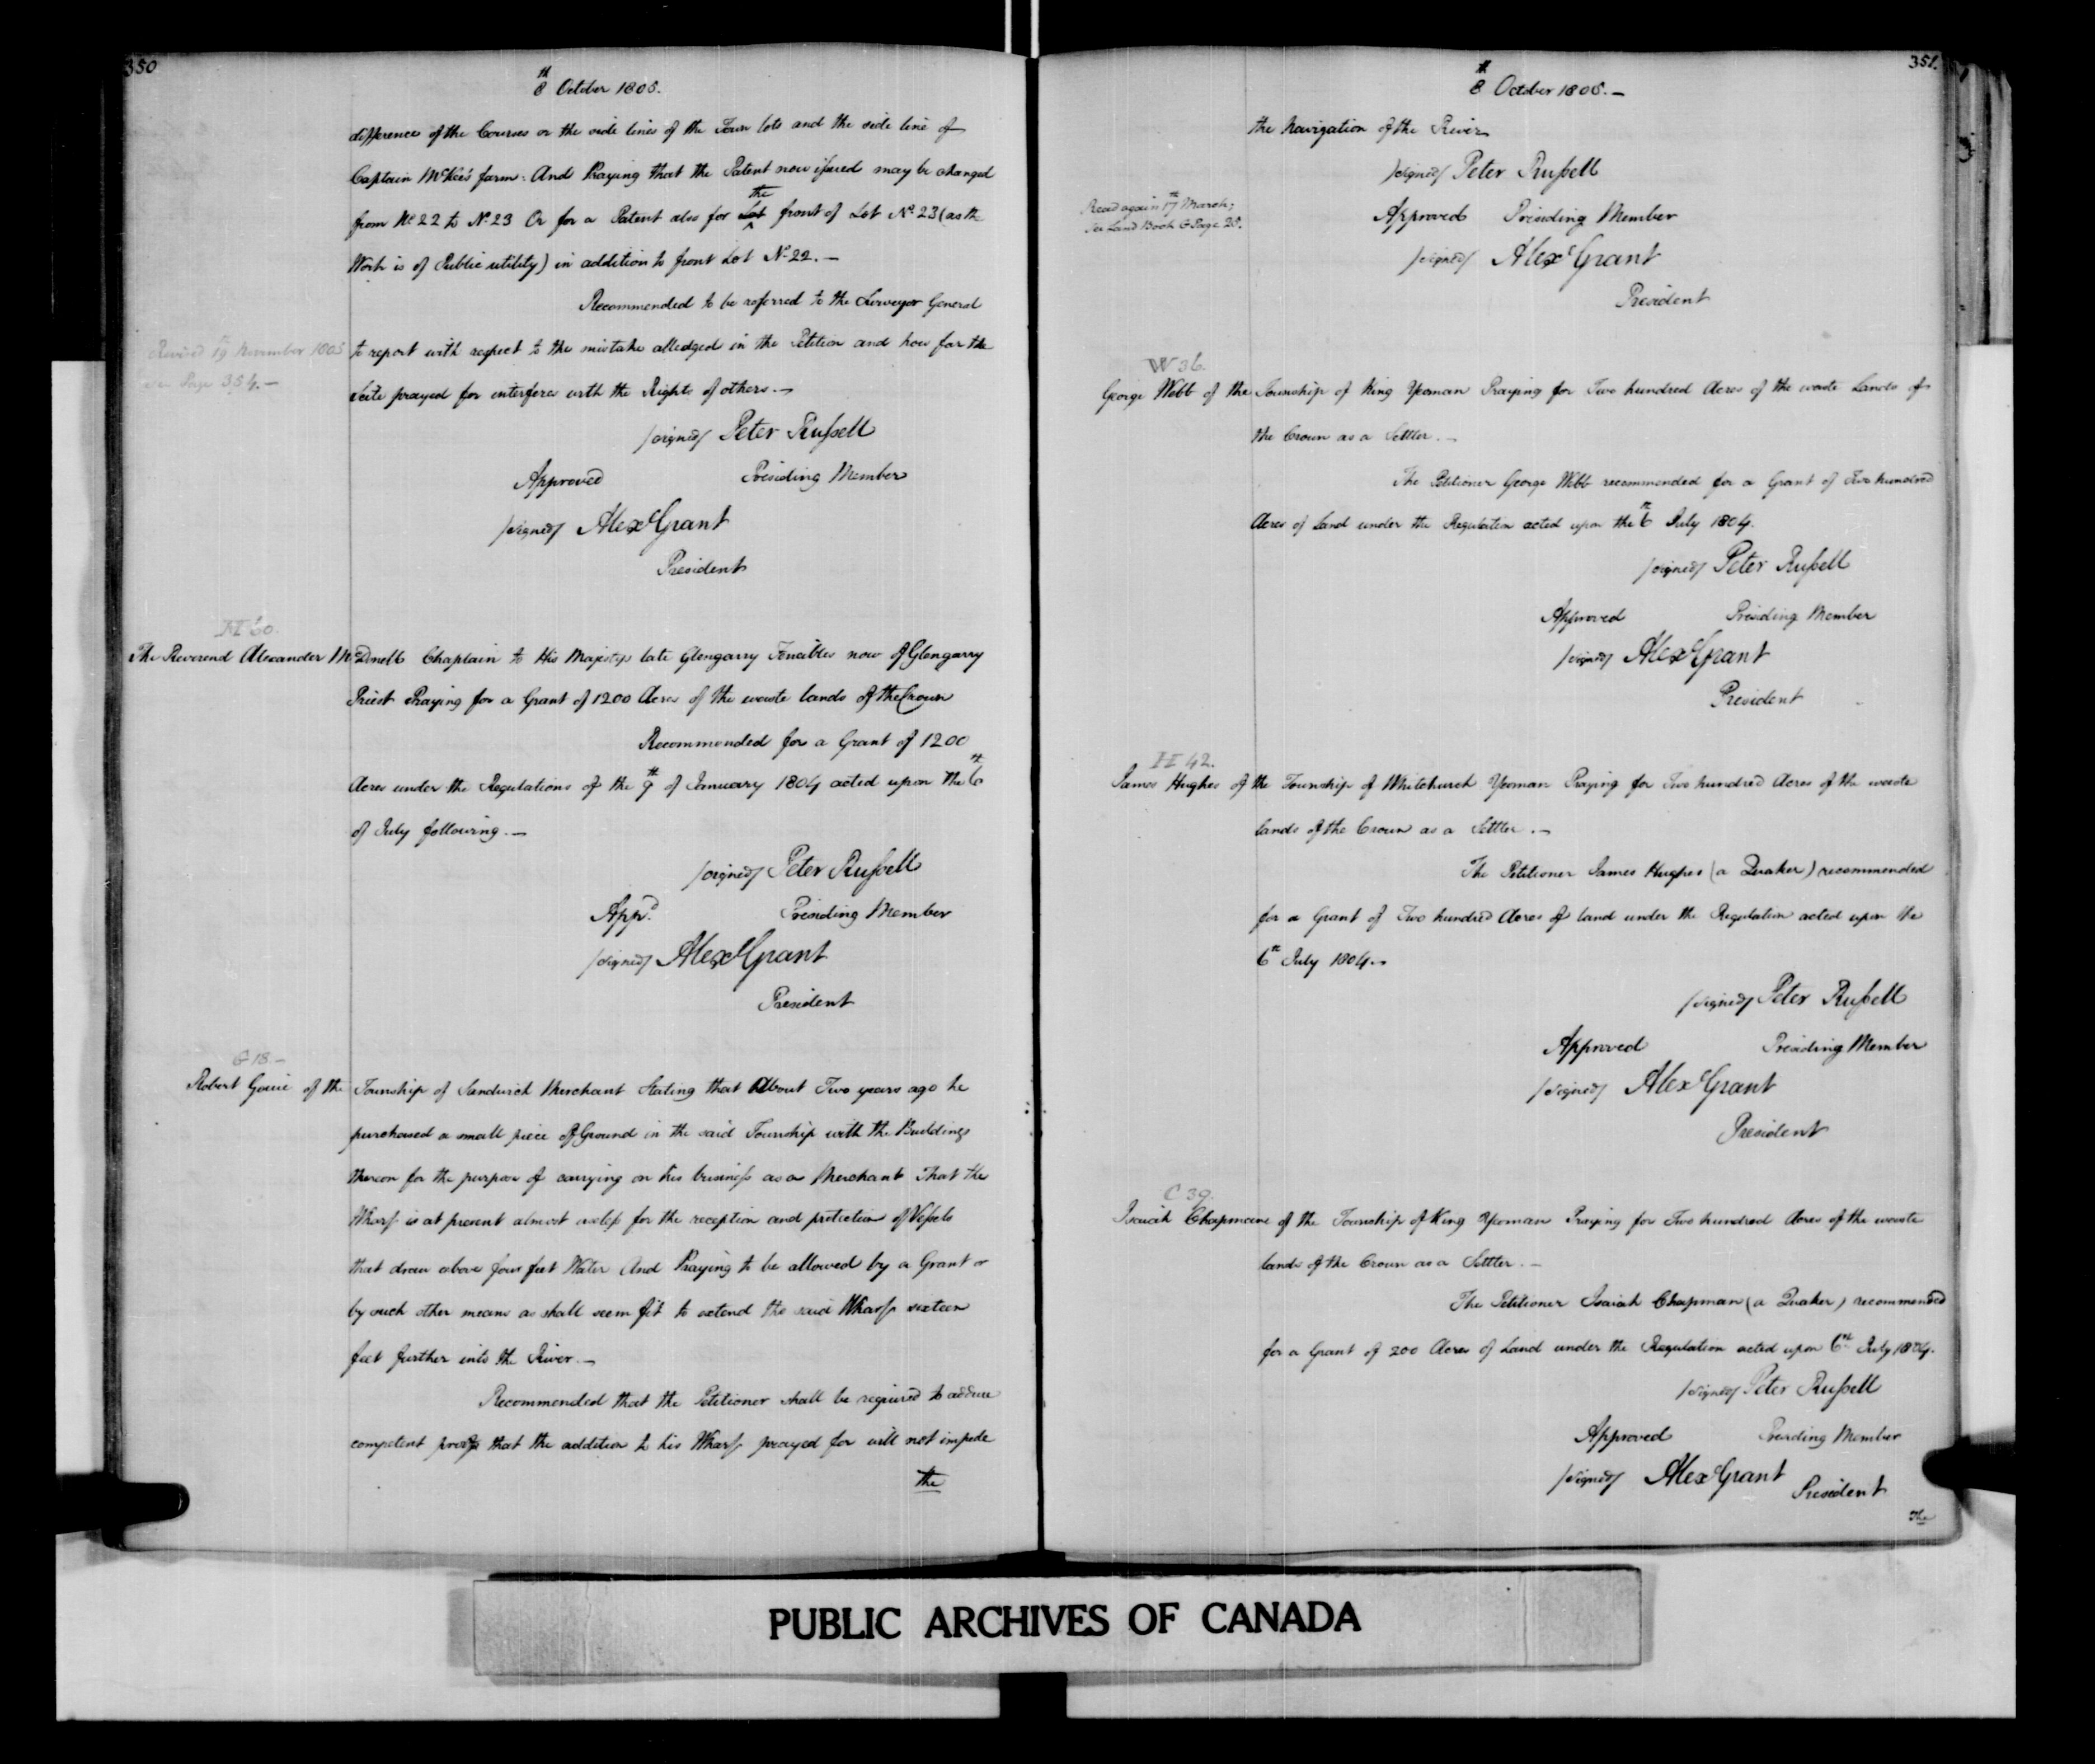 350
8th October 1805.
difference of the Courses or the side lines of the Town lots and the side line of
Captain McKee's farm: And Praying that the Patent now issued may be changed
from No 22 to No 23 Or for a Patent also for Lot the front of Lot No 23 (as the
Work is of Public utility) in addition to front Lot No 22.—
Recommended to be referred to the Surveyor General
Revived 19th November 1805
see Page 354.—
to report with respect to the mistake alledged in the Petition and how far the
Scite prayed for interferes with the Rights of others.—
/signed/ Peter Russell
Approved Presiding Member
/signed/ Alex Grant
President
The Reverend Alexander McDonell Chaplain to His Majestys late Glengarry Fencibles now of Glengarry
Priest Praying for a Grant of 1200 Acres of the waste lands of the Crown
Recommended for a Grant of 1200
Acres under the Regulations of the 9th of January 1804 acted upon the 6th
of July following.—
/signed/ Peter Russell
Appd. Presiding Member
/signed/ Alex Grant
President
G 18.—
Robert Gouie of the Township of Sandwich Merchant Stating that About Two years ago he
purchased a small piece of Ground in the said Township with the Buildings
thereon for the purpose of carrying on his business as a Merchant That the
Wharf is at present almost useless for the reception and protection of Vessels
that draw above four feet Water And Praying to be allowed by a Grant or
by such other means as shall seem fit to extend the said Wharf sixteen
feet further into the River.—
Recommended that the Petitioner shall be required to adduce
competent proof that the addition to his Wharf prayed for will not impede
the
351.
8th October 1805.—
the Navigation of the River
/signed/ Peter Russell
Read again 17th March;
See Land Book G Page 28.
Approved Presiding Member
/signed/ Alex Grant
President
W 36.
George Webb of the Township of King Yeoman Praying for Two hundred Acres of the waste Lands of
the Crown as a Settler.—
The Petitioner George Webb recommended for a Grant of Two hundred
Acres of Land under the Regulation acted upon the 6th July 1804.
/signed/ Peter Russell
Approved Presiding Member
/signed/ Alex Grant
President
H 42.
James Hughes of the Township of Whitchurch Yeoman Praying for Two hundred Acres of the waste
lands of the Crown as a Settler.—
The Petitioner James Hughes (a Quaker) recommended
for a Grant of Two hundred Acres of land under the Regulation acted upon the
6th July 1804.—
/signed/ Peter Russell
Approved Presiding Member
/signed/ Alex Grant
President
C 39.
Isaiah Chapman of the Township of King Yeoman Praying for Two hundred Acres of the waste
lands of the Crown as a Settler.—
The Petitioner Isaiah Chapman (a Quaker) recommended
for a Grant of 200 Acres of Land under the Regulation acted upon 6th July 1804.
/signed/ Peter Russell
Approved Presiding Member
/signed/ Alex Grant
President
The
PUBLIC ARCHIVES OF CANADA